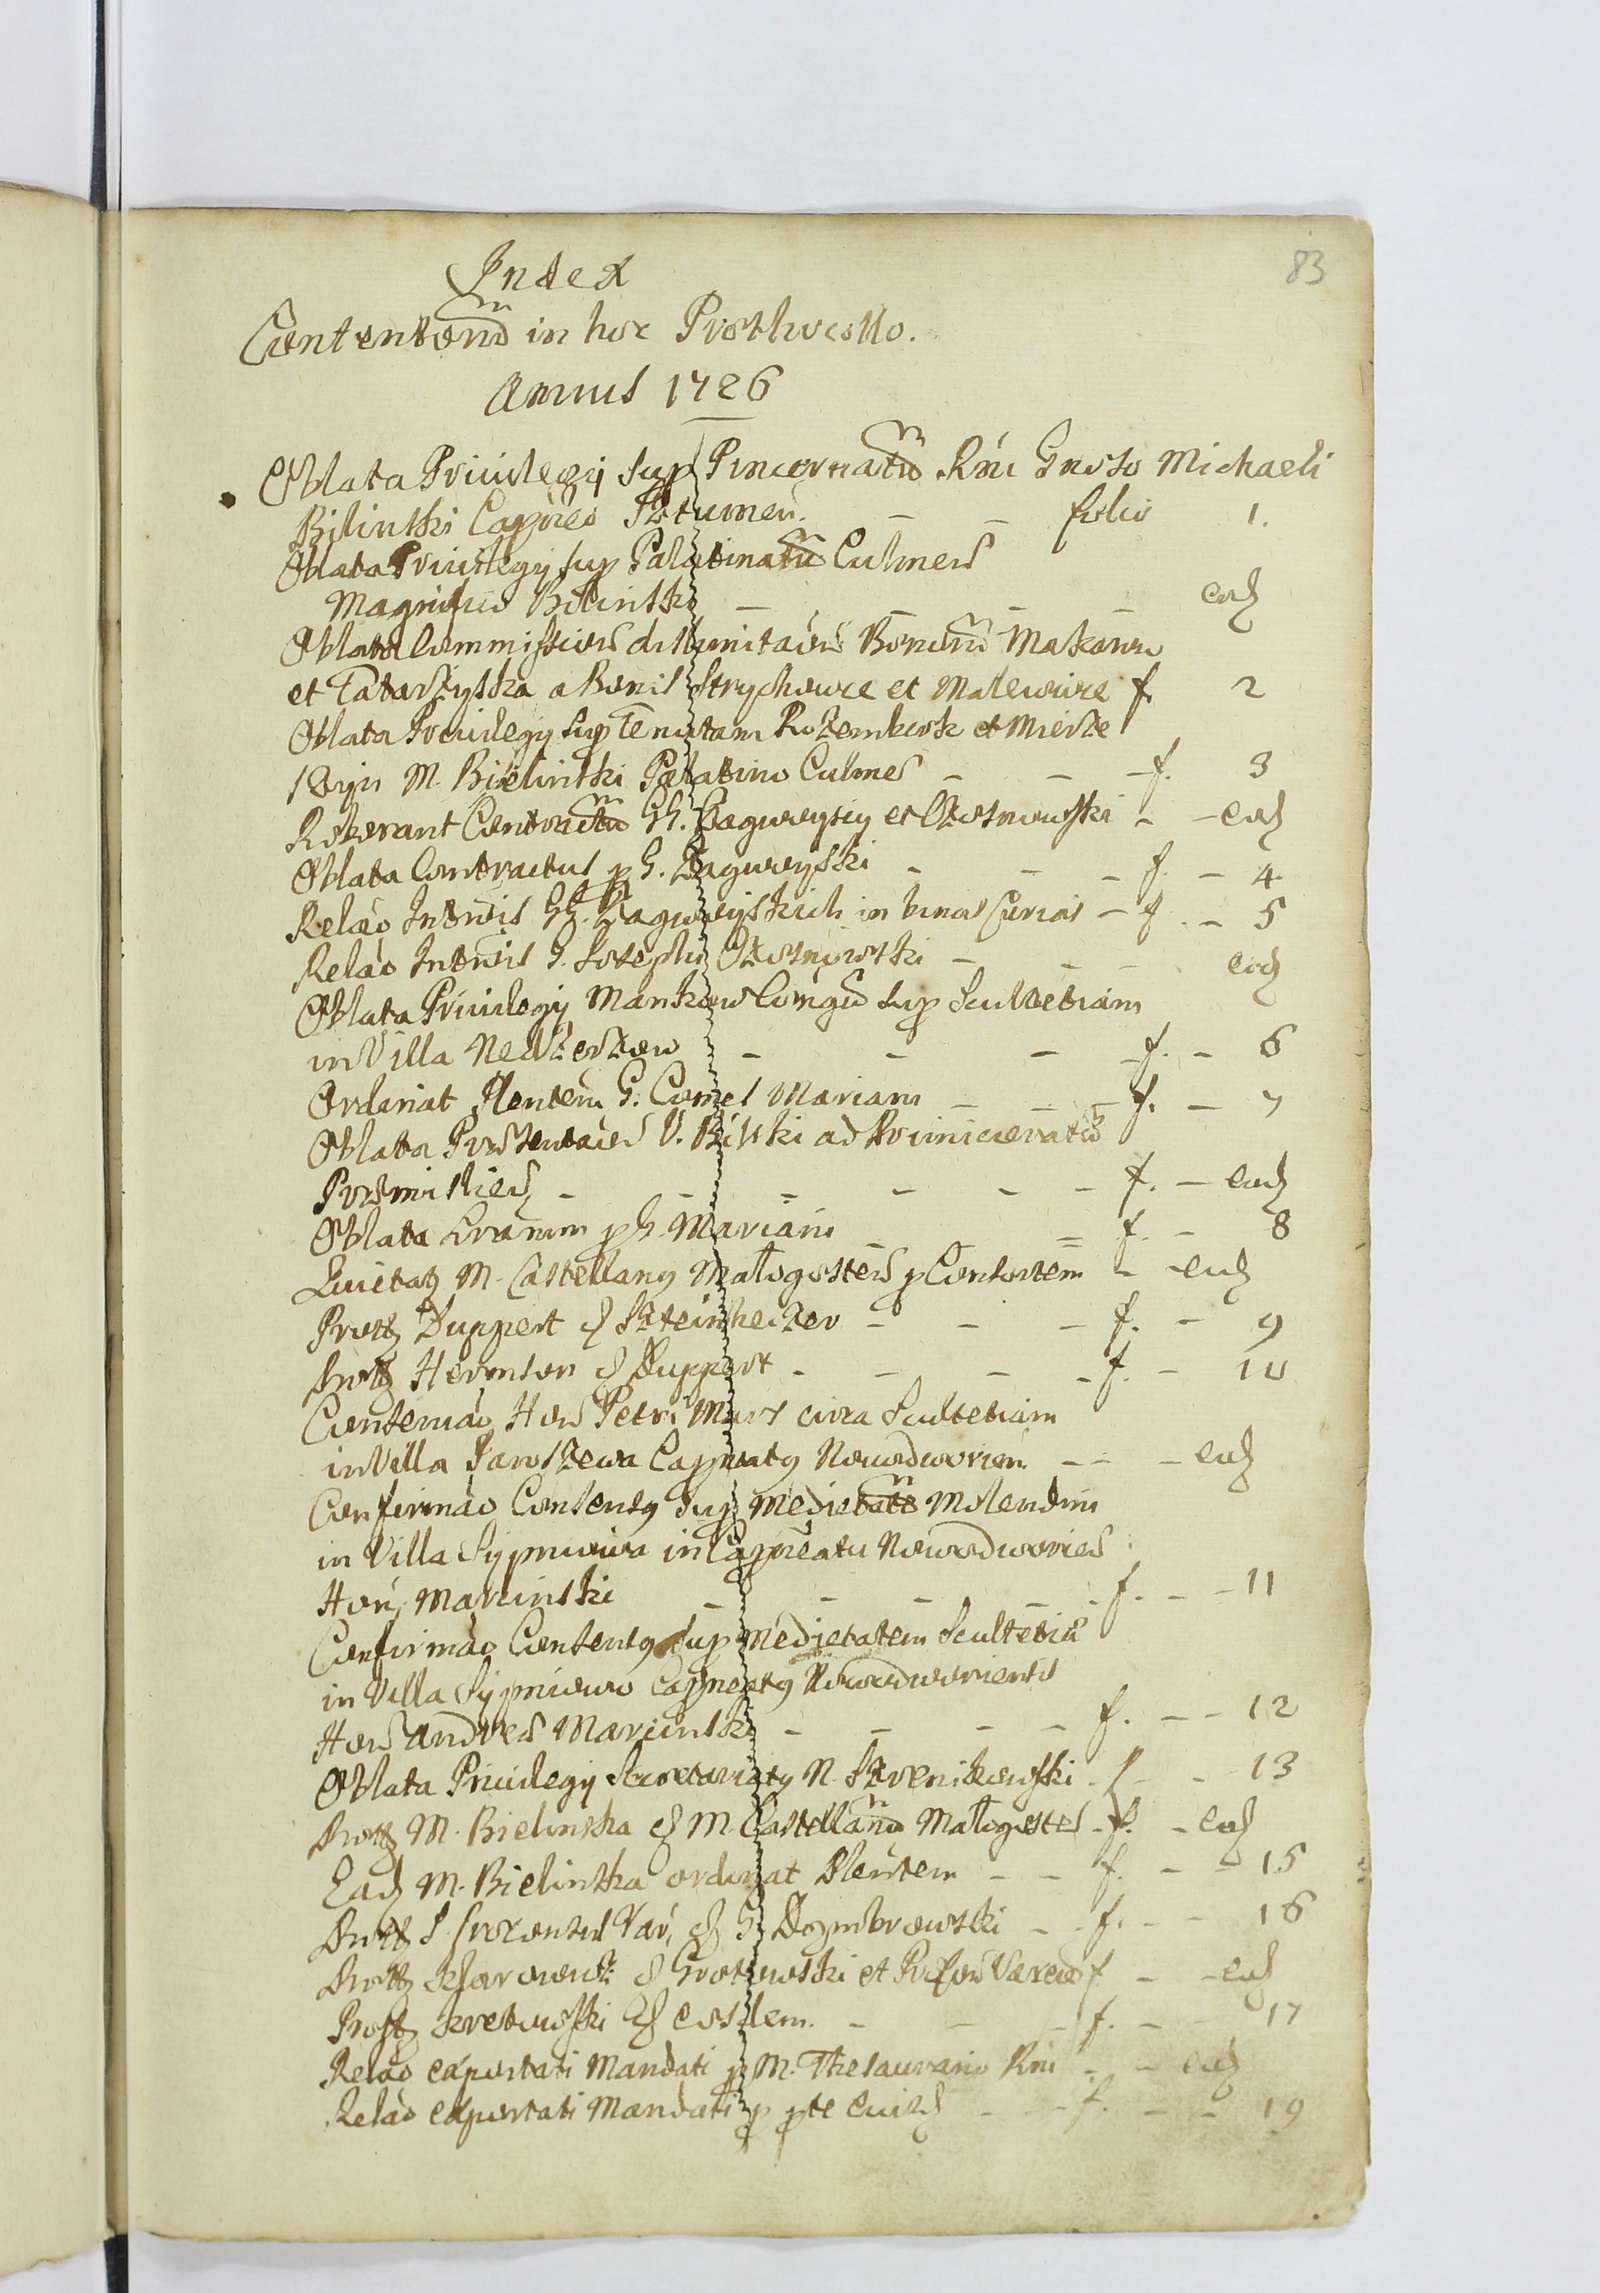 83
Index
Contentorũ in hoc Prothocollo.
Annus 1726
Oblata Privilegij sup Pincernatũ Rńi Gnoso Michaeli
Bilinski Capneo Sztumen. – – folio 1.
Oblata Privilegij sup Palatinatũ Culmen
Magnifico Bilinski – – – – eod
Oblata Commissionis dislimitaõis Bonorũ Makowo
et Tatarzyska a Bonis Strychowce et Malewice f. 2
Oblata Privilegij sup Tenutam Rozemkosk et Mierze
M. Bielinski Palatino Culmen – – – f. 3
Roborant Contractũ GG. Zagworyscy et Ozosnowski – – eod
Oblata Contractus p G. Zagwoyski – – – f. – 4.
Relaõ Intrõis GG. Zagwoyskich in binas Curias – f. – 5
Relaõ Intrõis G. Josephi Ozosnowski – – – eod
Oblata Privilegij Mankow Coniugũ sup Scultetiam
in Villa Nedzerzew – – – – f. – 6
Ordinat Plentem G. Comes Mariani – – – f. – 7
Oblata Przsentaõis V. Bilski ad Primiceratũ
Przsmislien – – – – – – f. – eod
Oblata p G. Mariani – = f. – 8
Quietat M. Castellanus Małogosten p Consortem – – eod
Prott Duppert Szteinheizer – – – f. – 9
Prott Hermson Duppert – – – – f. – 10
Consensuaõ Hon Petri Murs circa Scultetiam
in Villa Jaroszewa Capneatus Nowodworien – – – eod
Confirmaõ Consensus sup Medietatẽ Molendini
in Villa Sypniowa in Capneatu Nowodworien
Hon Marcinski – – – – – f. – – 11
Confirmaõ Consensus sup Medietatem Scultetiæ
in Villa Sypniowo Capneatus Nowodworiensis
Hon Andrea Marcinski – – – – f. – – 12
Oblata Privilegij Secretariatus N. Szrenikowski – f. – – 13
Prott M. Bielinska M. Castellanũ Małogosten – f. – eod
Ead M. Bielinska ordinat Plentem – – f. – – 15
Prott G. Dombrowski – – f. – – 16
Prott Grotowski et f – – eod
Prott Kretowski eosdem. – – – f. – – 17
Relaõ exportati Mandati p M. Thesaurario Rńi – – eod
Relaõ exportati Mandati p pte – – f. – – 19